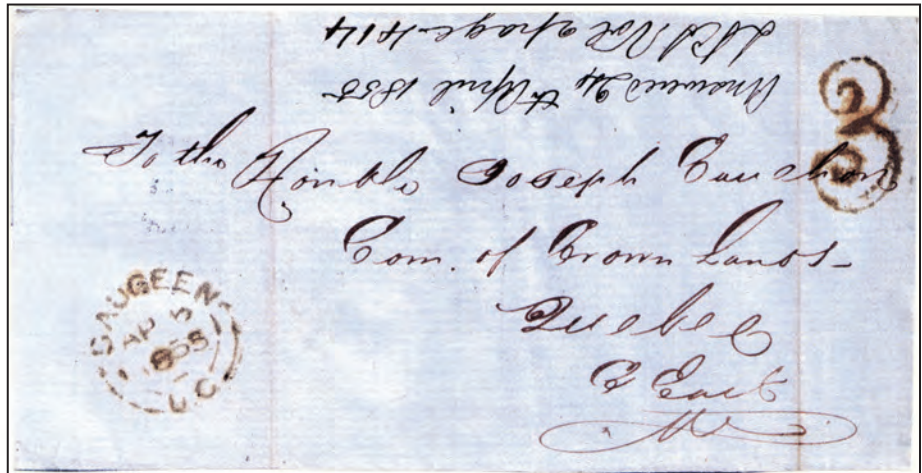 Answered 24th April 1855
page 414
To the Honble Joseph Cauchon
Com. of Crown Lands -
Quebec
C East
3
SAUGEEN
AP 5
1855
U.C.